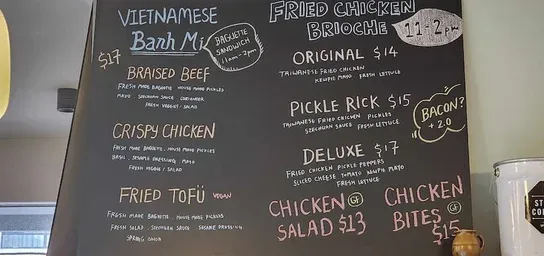 VIETNAMESE
Banh Mi
$17
BAGUETTE
SANDWICH
11am-2pm
BRAISED BEEF
FRESH MADE BAGUETTE HOUSE MADE PICKLES
MAYO SZECHUAN SAUCE CORIANDER
FRESH VEGGIES / SALAD
CRISPY CHICKEN
FRESH MADE BAGUETTE, HOUSE MADE PICKLES
BASIL, SESAME DRESSING, MAYO
FRESH VEGGIE / SALAD
FRIED TOFÜ VEGAN
FRESH MADE BAGUETTE, HOUSE MADE PICKLES
FRESH SALAD, SZECHUAN SAUCE, SESAME DRESSING
SPRING ONION
FRIED CHICKEN
BRIOCHE
11-2pm
ORIGINAL $14
TAIWANESE FRIED CHICKEN
KEWPIE MAYO FRESH LETTUCE
PICKLE RICK $15
TAIWANESE FRIED CHICKEN PICKLES
SZECHUAN SAUCE FRESH LETTUCE
BACON?
+ 2.0
DELUXE $17
FRIED CHICKEN PICKLE PEPPERS
SLICED CHEESE TOMATO KEWPIE MAYO
FRESH LETTUCE
CHICKEN GF
SALAD $13
CHICKEN
BITES GF
$15